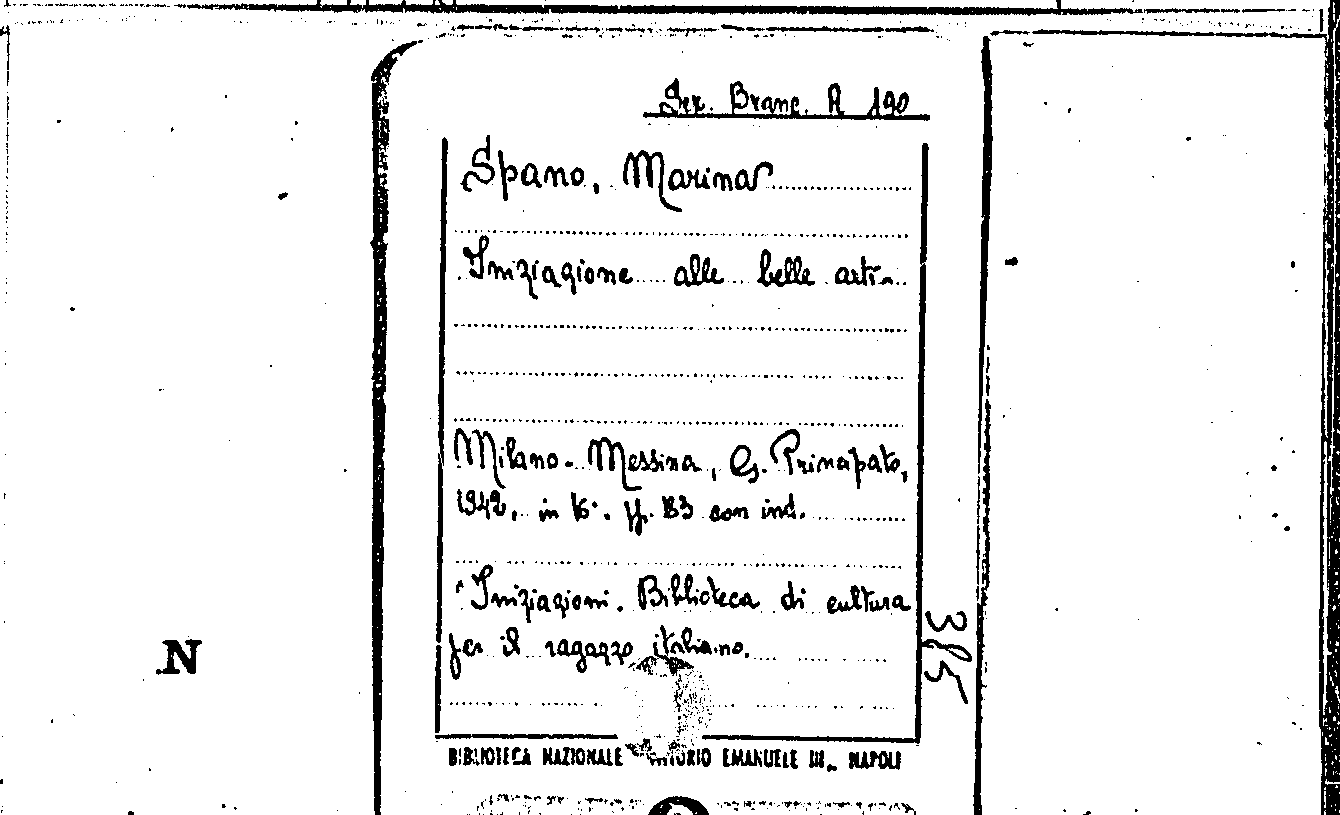 Ser. Branc. A 190
Spano, Marina
Iniziazione alle belle arti.
Milano - Messina, G. Principato,
1942. in 16°. pp. 183 con ind.
Iniziazioni. Biblioteca di cultura
per il ragazzo italiano.
385
N
BIBLIOTECA NAZIONALE VITTORIO EMANUELE III - NAPOLI